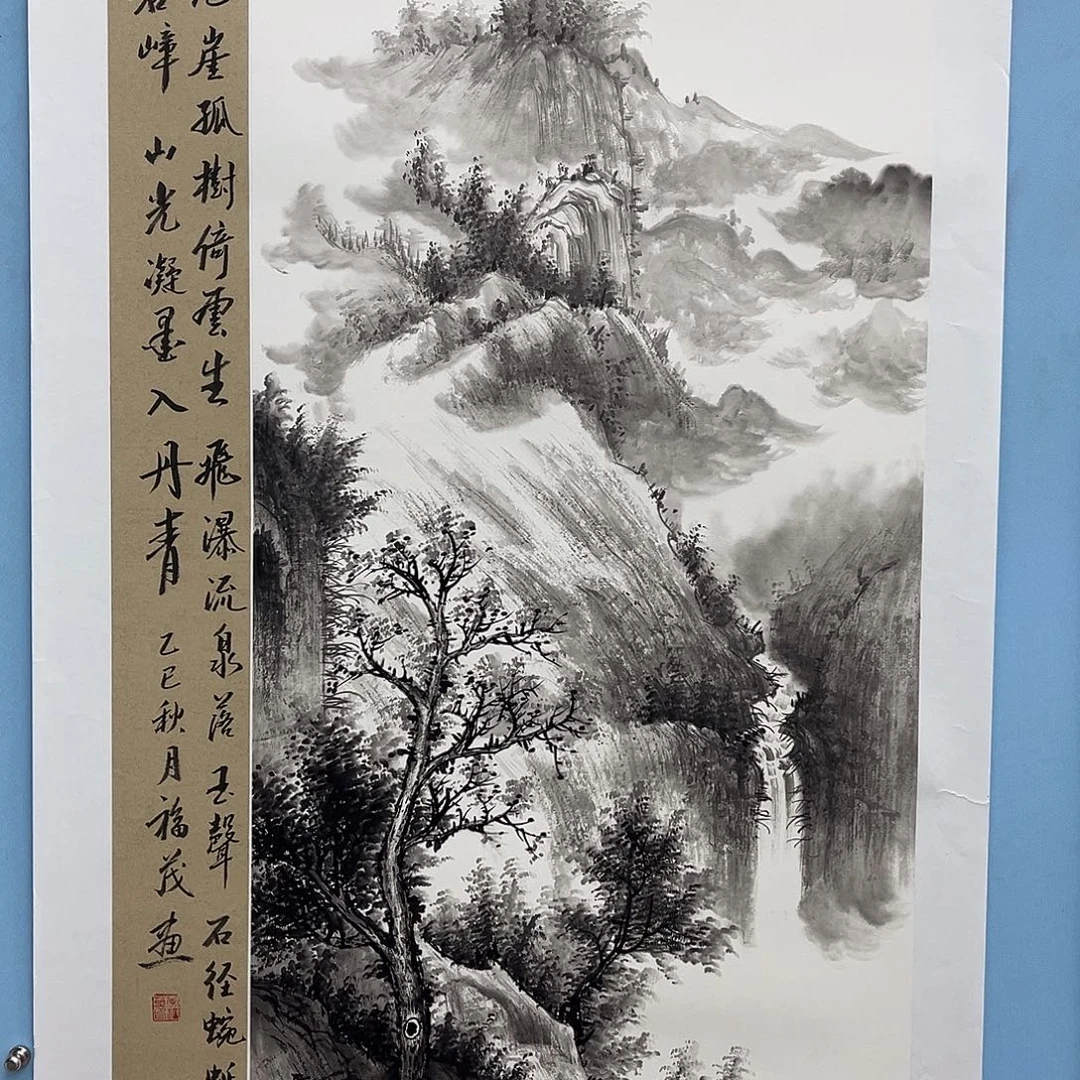 崖孤樹倚雲生 飛瀑流泉落玉聲 石径蜿
嶂 山光凝墨入丹青 乙巳秋月福茂畫